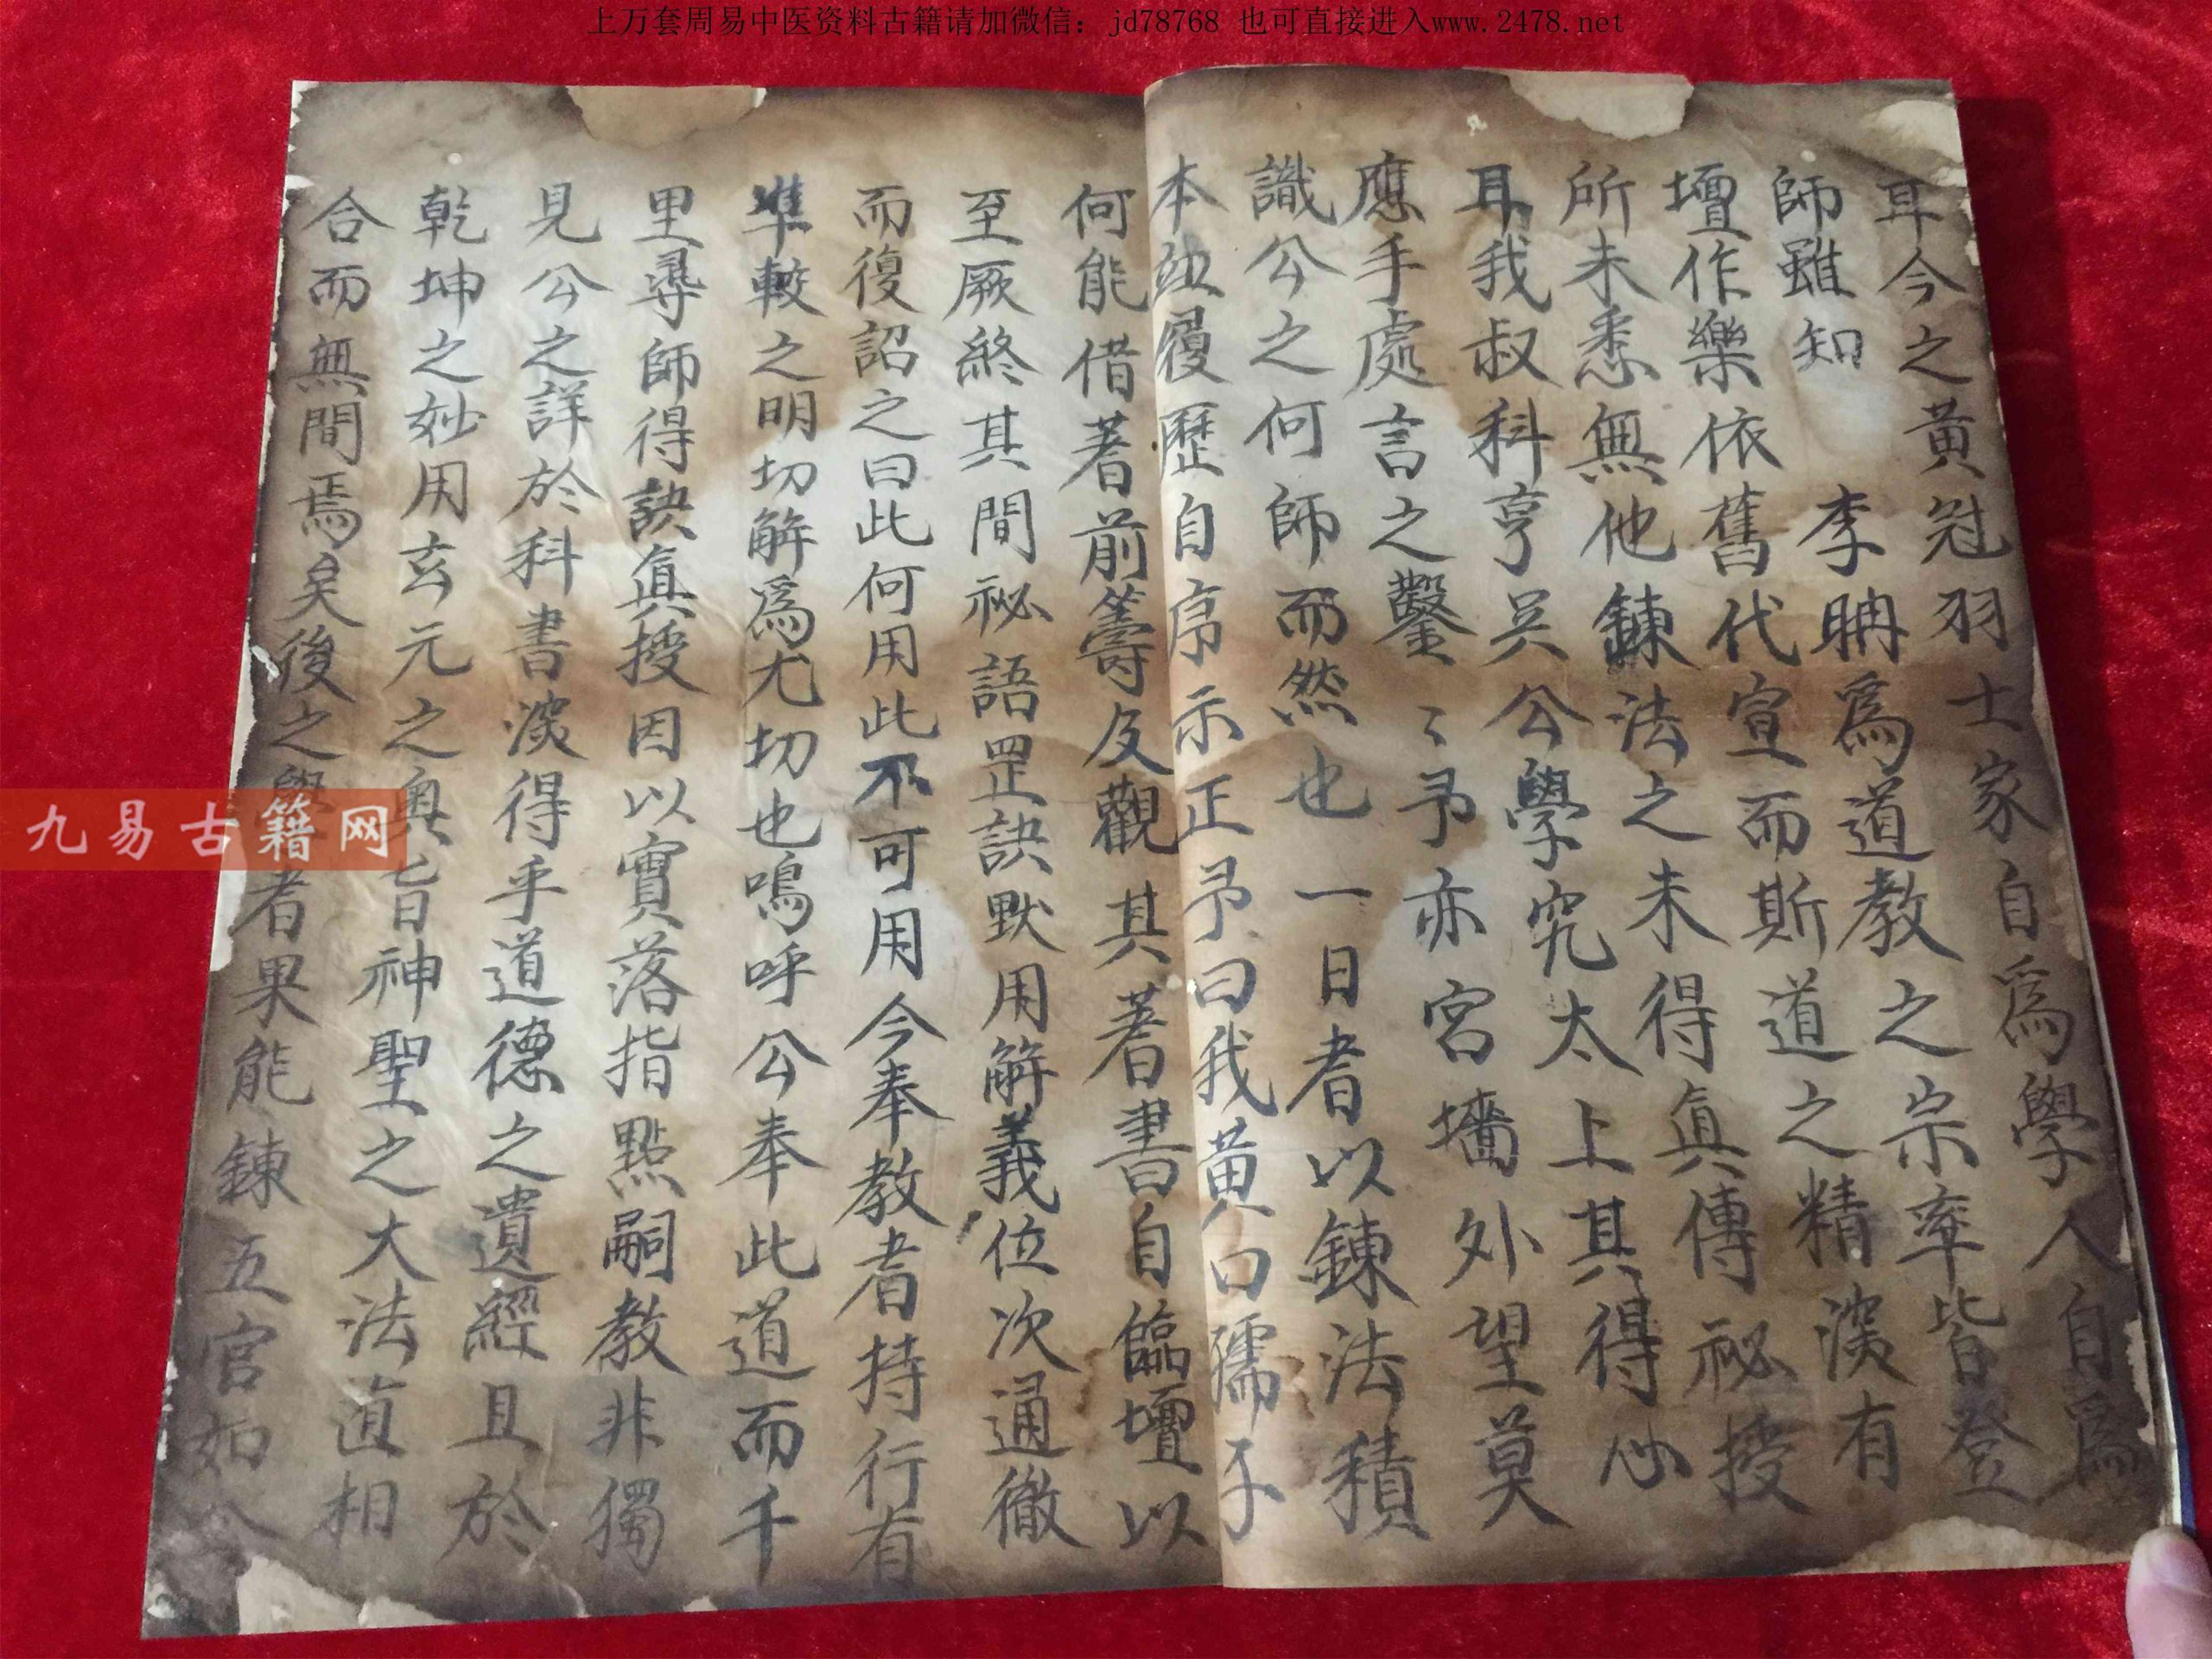 上万套周易中医资料古籍请加微信：jd78768 也可直接进入www.2478.net
耳今之黄冠羽士家自爲學人自爲
師雖知 李聃爲道教之宗率皆登
壇作樂依舊代宣而斯道之精深有
所未悉無他鍊法之未得真傳祕授
耳我叔科亨吴公學究太上其得心
應手處言之鑿〻予亦宮墻外望莫
識公之何師而然也一日者以鍊法積
本並履歷自序示正予曰我黄口孺子
何能借著前籌及觀其著書自臨壇以
至厥終其間祕語罡訣默用解義位次通徹
而復詔之曰此何用此不可用今奉教者持行有
準較之明切解爲尤切也鳴呼公奉此道而千
里尋師得訣真授因以實落指點嗣教非獨
見公之詳於科書深得乎道德之遺經且於
乾坤之妙用玄元之奥旨神聖之大法直相
合而無間焉矣後之學者果能鍊五官如公
九易古籍网